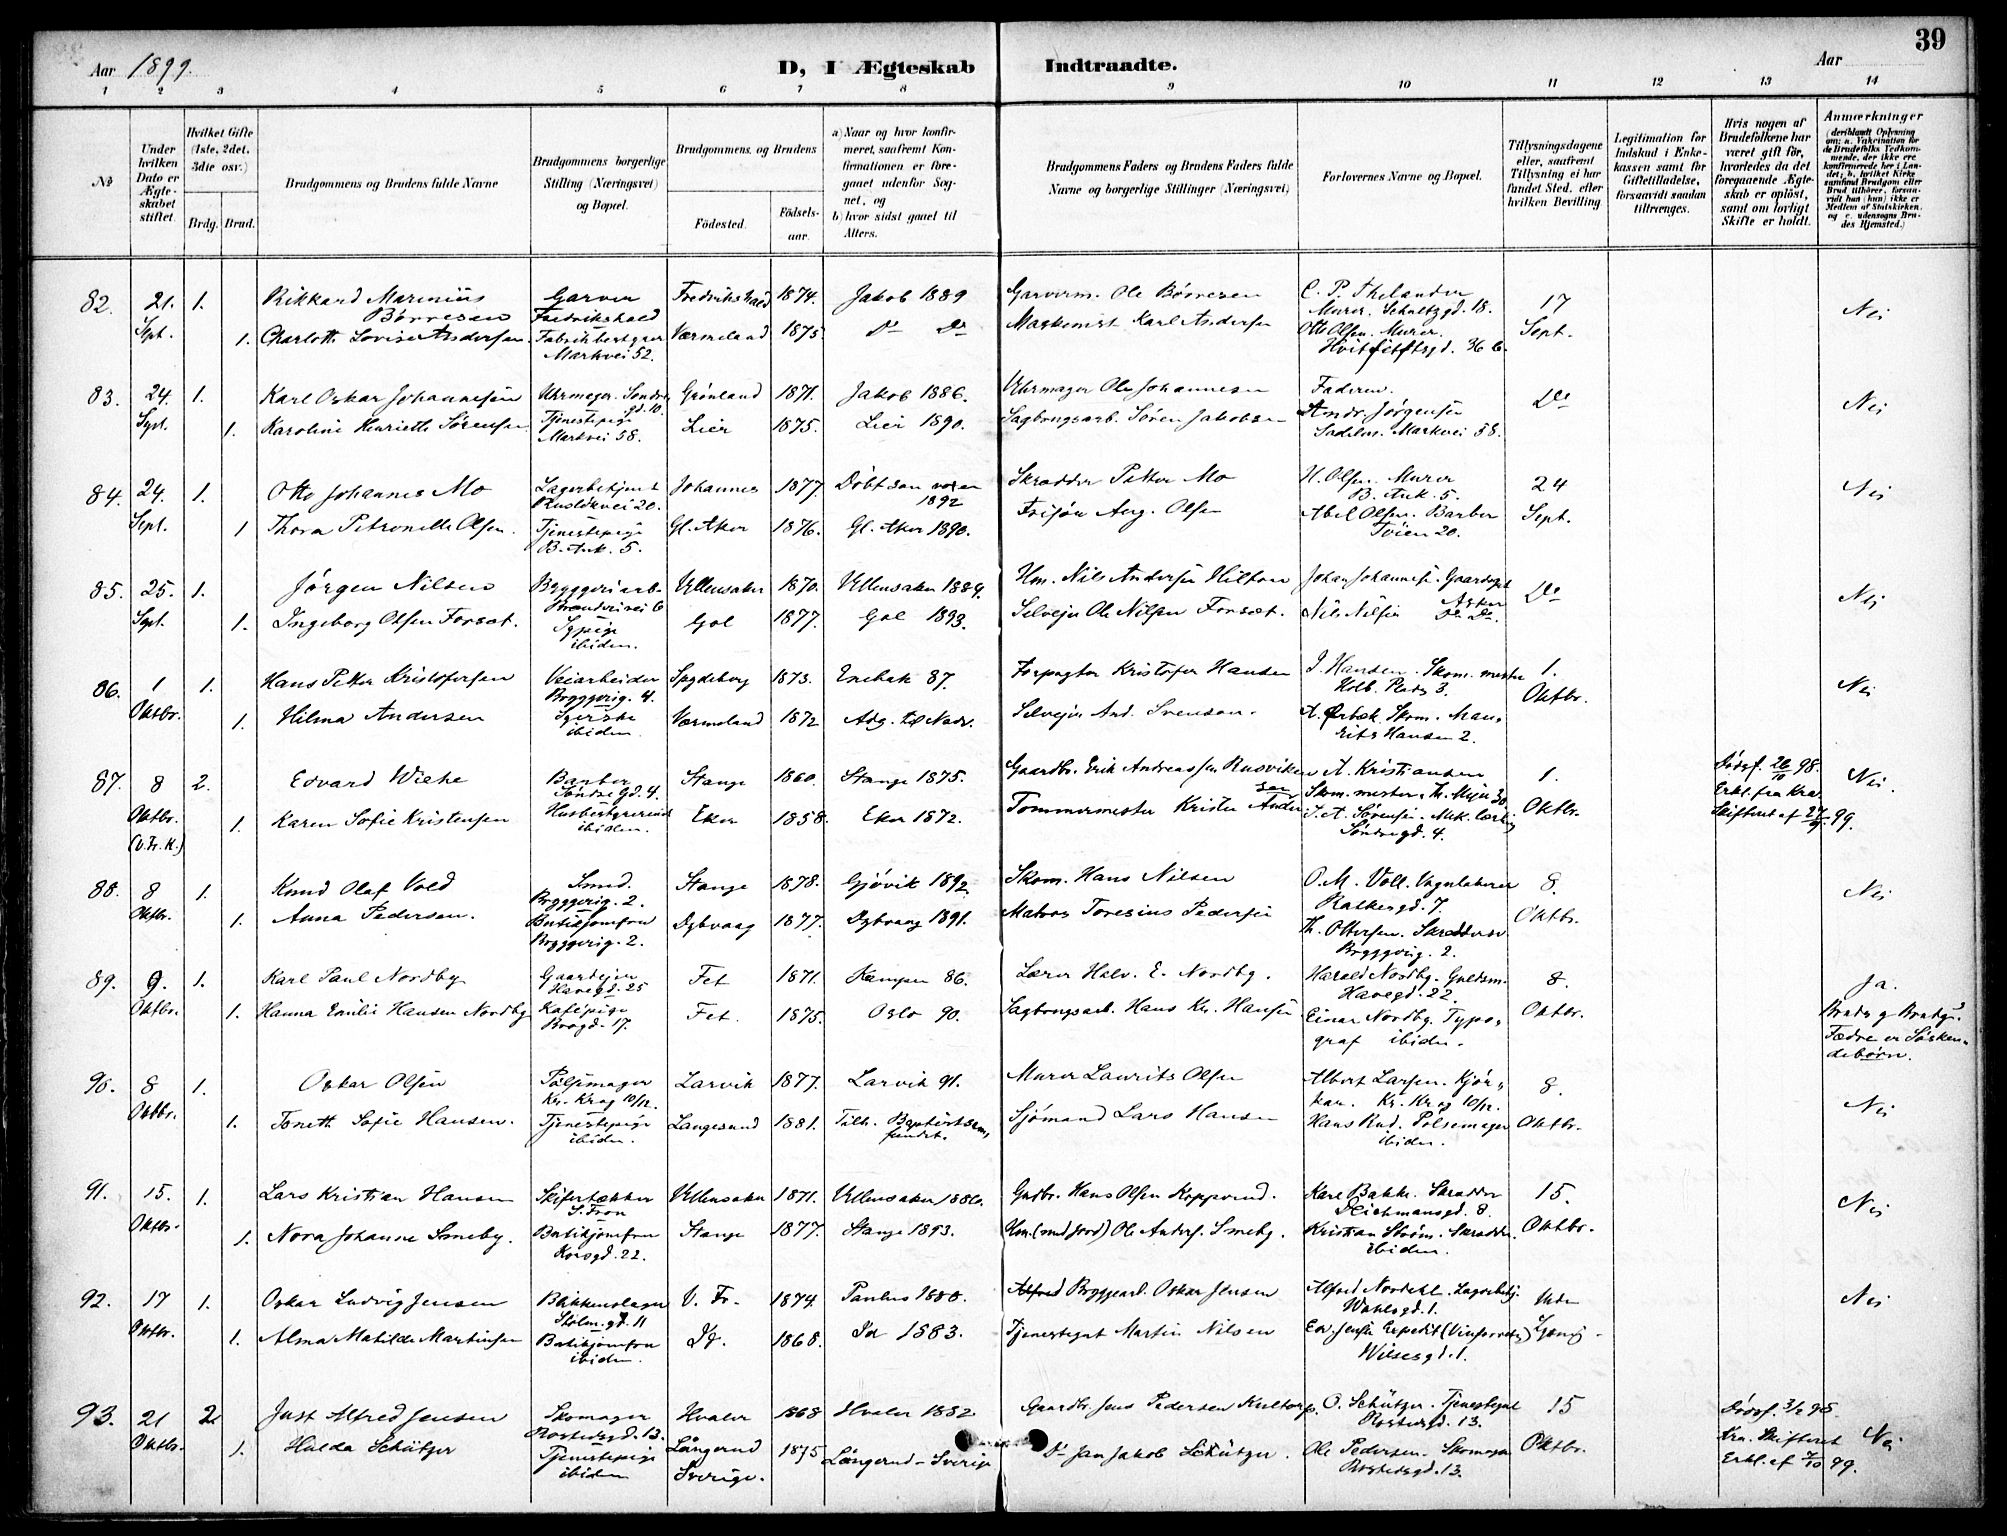 39
Aar 1899.
D, I Ægteskab Indtraadte.
Aar
1 2 3 4 5 6 7 8 9 10 11 12 13 14
No
Under hvilken Dato er Ægteskabet stiftet.
Hvilket Gifte (1ste, 2det, 3die osv.)
Brdg. Brud.
Brudgommens og Brudens fulde Navne
Brudgommens borgerlige Stilling (Næringsvei) og Bopæl.
Brudgommens og Brudens
Fødested. Fødselsaar.
a) Naar og hvor konfirmeret, saafremt Konfirmationen er foregaaet udenfor Sognet, og
b) hvor sidst gaaet til Alters.
Brudgommens Faders og Brudens Faders fulde Navne og borgerlige Stillinger (Næringsvei)
Forlovernes Navne og Bopæl.
Tillysningsdagene eller, saafremt Tillysning ei har fundet Sted, efter hvilken Bevilling
Legitimation for Indskud i Enkekassen samt for Giftetilladelse, forsaavidt saadan tiltrænges.
Hvis nogen af Brudefolkene har været gift før, hvorledes da det foregaaende Ægteskab er opløst, samt om lovligt Skifte er holdt.
Anmærkninger
82. 21. 1. Rikkard Marinius Garver Fredrikshald 1874. Jakob 1889 Garverm. Ole Börresen C. P. Thelander 17 Nei
Börresen Fredrikshald Murer. Schultzgd. 18.
Sept. 1. Charlotte Lovise Andersen Værmeland 1875. Do Do Maskinist Karl Andersen Otto Olsen. Murer. Sept.
Markvei 52. Hvitfeldtsgd. 36 b.
83. 24. 1. Karl Oskar Johannesen Uhrmager. Söndre Grönland 1871. Jakob 1886. Uhrmager Ole Johannesen Faderen. Do Nei
gd. 10
Sept. 1. Karoline Henriette Sörensen Tjenestepige Lier 1875. Lier 1890. Sagbrugsarb. Sören Jakobsen Andr. Jörgensen
Markvei 58. Sadelm. Markvei 58.
84. 24. 1. Otto Johannes Mo Lagerbetjent Johannes 1877. Döbt som voxen Skrædder Petter Mo H. Olsen. Murer 24 Nei
Ruslökvei 20. 1892 B. Ank. 5.
Sept. 1 Thora Petronelle Olsen. Tjenestepige Gl. Aker 1876. Gl. Aker 1890. Frisör Aug. Olsen Abel Olsen. Barber Sept.
B. Ank. 5. Töien 20.
85. 25. 1. Jörgen Nilsen Bryggeriarb. Ullensaker 1870. Ullensaker 1884. Hm. Nils Andersen Hilton Johan Johannesen. Do Nei
Aker
Sept. 1. Ingeborg Olsen Forsat. Sypige Gol 1877. Gol 1893. Selveier Ole Nilsen Forsæt. Nils Nilsen Do Do.
ibidem.
86. 1 1. Hans Petter Kristofersen Veiarbeider Spydeberg 1873. Enebak 87. Forpagter Kristofer Hansen J. Hansen. Skom. mester 1. Nei
Bryggerig. 4. Holb. Plads 3.
Oktbr. 1. Hilma Andersen Syerske Værmeland 1872 Adg. til Nadv. Selveier And. Svenson. A. Ørbæk. Skom. Mau- Oktbr.
ibidem. ritz Hansen 2.
87. 8 2. Edvard Wiehe Bander Stange 1860. Stange 1875. Gaardbr. Erik Andreassen Rusviken A. Kristiansen 1. Dödsf. 26/11 98. Nei.
Söndre gd. 4. sen Skom. mester. Th. Meier 30 Erkl. fra Kra.
Oktbr. 1. Karen Sofie Kristensen Husbestyrerinde Eker 1858. Eker 1872. Tømmermester Krister Ander J. A. Sörensen. Mek. Oktbr. Skifteret af 27/9 99.
(V. Fr. K.) ibidem. Söndregd. 4.
88. 8 1. Knud Olaf Vold Smed. Stange 1878. Gjövik 1892. Skom. Hans Nilsen O. M. Voll. 8. Nei
Bryggerig. 2. gd. 7.
Oktbr. 1. Anna Pedersen. Butikjomfru Dybvaag 1877. Dybvaag 1891. Matros Toresius Pedersen Th. Ottersen. Skrædder Oktbr.
Bryggerig. 2. Bryggerig. 2.
89. 9. 1. Karl Paul Nordby Gaardeier Fet 1871. Kampen 86. Lærer Halv. E. Nordby. Harald Nordby. Guldsm. 8. Ja.
Havegd. 25 Havegd. 22.
Oktbr. 1. Hanna Emilie Hansen Nordby Kafépige Fet. 1875. Oslo 90. Sagbrugsarb. Hans Kr. Hansen Einar Nordby. Typo- Oktbr. Bruds og Brudg.
Brogd. 17. graf ibidem. Fædre er Södsken-
debörn.
90. 8 1. Oskar Olsen Pölsemager Larvik 1877. Larvik 91. Murer Laurits Olsen Albert Larsen. Kjör- 8. Nei
Kr. Krag 10/12. kar. Kr. Krag 10/12.
Oktbr. 1. Tonette Sofie Hansen. Tjenestepige Langesund 1881. Tilh. Baptistsam- Sjömand Lars Hansen Hans Rud. Pölsemager Oktbr.
ibidem. fundet. ibidem.
91. 15. 1. Lars Kristian Hansen Skifertækker Ullensaker 1871. Ullensaker 1886. Gdbr. Hans Olsen Karl Bakke. Skrædder 15. Nei
S. Fron Deichmansgd. 8.
Oktbr. 1. Nora Johanne Smeby. Butikjomfru Stange 1877. Stange 1893. Hm. (med jord) Ole Anders. Smeby. Kristian Ström. Skrædder. Oktbr.
Korsgd. 22. ibidem.
92. 17 1. Oskar Ludvig Jensen Blikkenslager V. Fr. 1874. Paulus 1888. Bryggearb. Oskar Jensen Alfred Nordahl. Lagerbetj. Uden Nei
gd. 11 gd. 1.
Oktbr. 1. Alma Matilde Martinsen Butikjomfru Do. 1868. Do 1883. Tjenestegut Martin Nilsen Edv. Jensen Expedit
ibidem. Wilsesgd. 1.
93. 21 2 Just Alfred Jensen Skomager Hvaler 1868 Hvaler 1882 Gaardbr. Jens Pedersen O. Schützer. Tjenestegut 15 Dödsf. 3/2 95.
Rostedsgd. 13. Rostedsgd. 13. Kra. Skifteret Nei
Oktbr. 1. Hulda Schützer Tjenestepige Långerud 1875 Långerud - Sverige Do Jan Jakob Schützer. Ole Pedersen. Skomager Oktbr. Erkl. af 2/10 99.
ibidem Sverige. Rostedsgd. 13.